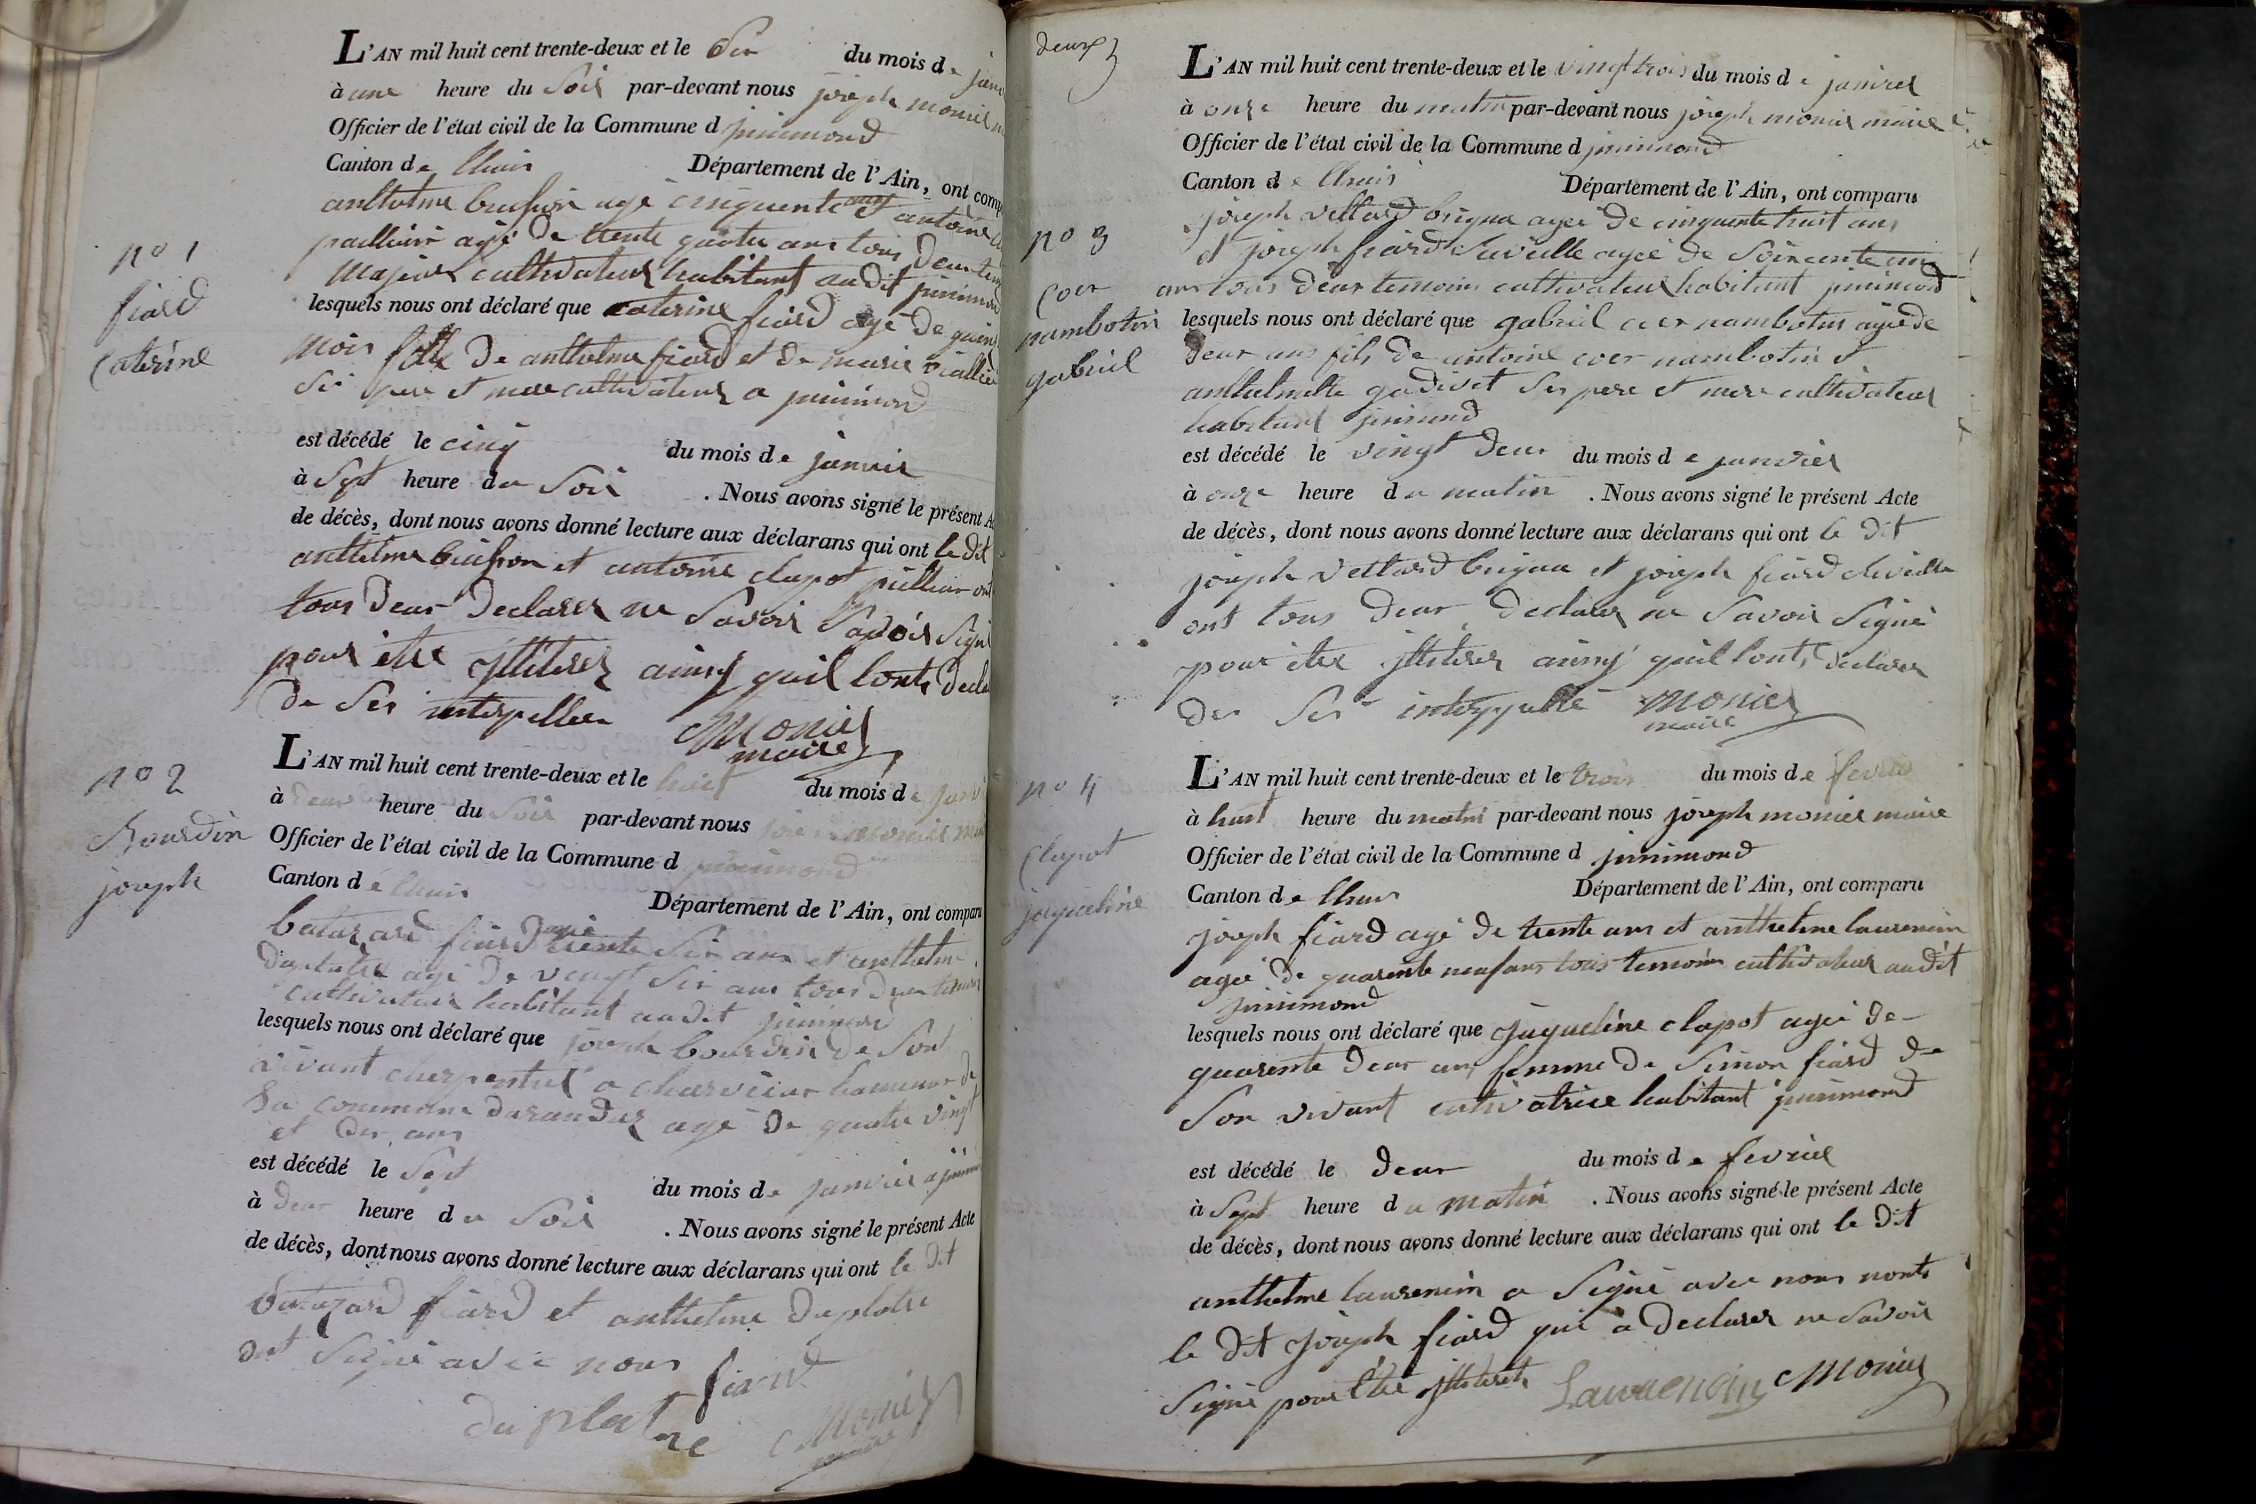 L'AN mil huit cent trente-deux et le Six du mois de janv
à une heure du Soir par-devant nous joseph monier
Officier de l'état civil de la Commune d junimond
Canton de lhuis Département de l'Ain, ont comp
anthelme buisson agé cinquente ans et antoine
pailliour agé de trente quatre ans tous deux tem
majeur cultivateur habitant audit junimond
n° 1
fiard
Caterine
lesquels nous ont déclaré que caterine fiard agé de quins
mois fille de anthelme fiard et de marie
Ses pere et mere cultivateur a junimond
est décédé le cinq du mois de janvier
à Sept heure du Soir . Nous avons signé le présent A
de décès, dont nous avons donné lecture aux déclarans qui ont le dit
anthelme buisson et antoine clapot ont
tous deux declarer ne Savoir Savoir Signé
pour être illiterer ainsy quil lonts decla
de Ses interpellee Monier
maire
L'AN mil huit cent trente-deux et le huit du mois de janvi
à deux heure du Soir par-devant nous joseph monier mai
Officier de l'état civil de la Commune d junimond
Canton de lhuis Département de l'Ain, ont comparu
n° 2
Bourdin
joseph
batazard fiard agé trente Six ans et anthelme
duplatre agé de vengt Six ans tous deux temoin
cultivateur habitant audit junimond
lesquels nous ont déclaré que joseph bourdin de Son
vivant cherpentier a charvieux hameaux de
la commune agé de quatre vingt
et dix ans
est décédé le Sept du mois de janvier a junim
à deux heure du Soir . Nous avons signé le présent Acte
de décès, dont nous avons donné lecture aux déclarans qui ont le dit
batazard fiard et anthelme duplatre
ont Signé avec nous fiard
duplatre Monier
maire
deux
L'AN mil huit cent trente-deux et le vingt trois du mois de janvier
à onze heure du matin par-devant nous joseph monier maire
Officier de l'état civil de la Commune d junimond
Canton de lhuis Département de l'Ain, ont comparu
joseph vettard brigua agé de cinquente huit ans
et joseph fiard agé de Soixcente une
ans tous deux temoins cultivateur habitant junimond
n° 3
Coer
nambotin
gabriel
lesquels nous ont déclaré que gabriel coer nambotin agé de
deux ans fils de antoine coer nambotin et
anthelmette gadivet Ses pere et mere cultivateur
habitant junimond
est décédé le vingt deux du mois de janvier
à onze heure du matin . Nous avons signé le présent Acte
de décès, dont nous avons donné lecture aux déclarans qui ont le dit
joseph vettard brigua et joseph fiard
ont tous deux declarer ne Savoir Signé
pour être illiterer ainsy quil lonts declarer
des Ses interppellé Monier
maire
L'AN mil huit cent trente-deux et le trois du mois de fevrier
à huit heure du matin par-devant nous joseph monier maire
Officier de l'état civil de la Commune d junimond
Canton de lhuis Département de l'Ain, ont comparu
n° 4
Clapot
jaqueline
joseph fiard agé de trente ans et anthelme laurencin
agé de quarente neuf ans tous temoins cultivateur audit
junimond
lesquels nous ont déclaré que jaqueline clapot agée de
quarente deux ans femme de Simon fiard de
Son vivant cultivatrice habitant junimond
est décédé le deux du mois de fevrier
à Sept heure du matin . Nous avons signé le présent Acte
de décès, dont nous avons donné lecture aux déclarans qui ont le dit
anthelme laurencin a Signé avec nous nonts
le dit joseph fiard qui a declarer ne Savoir
Signé pour être illiterer Laurencin Monier